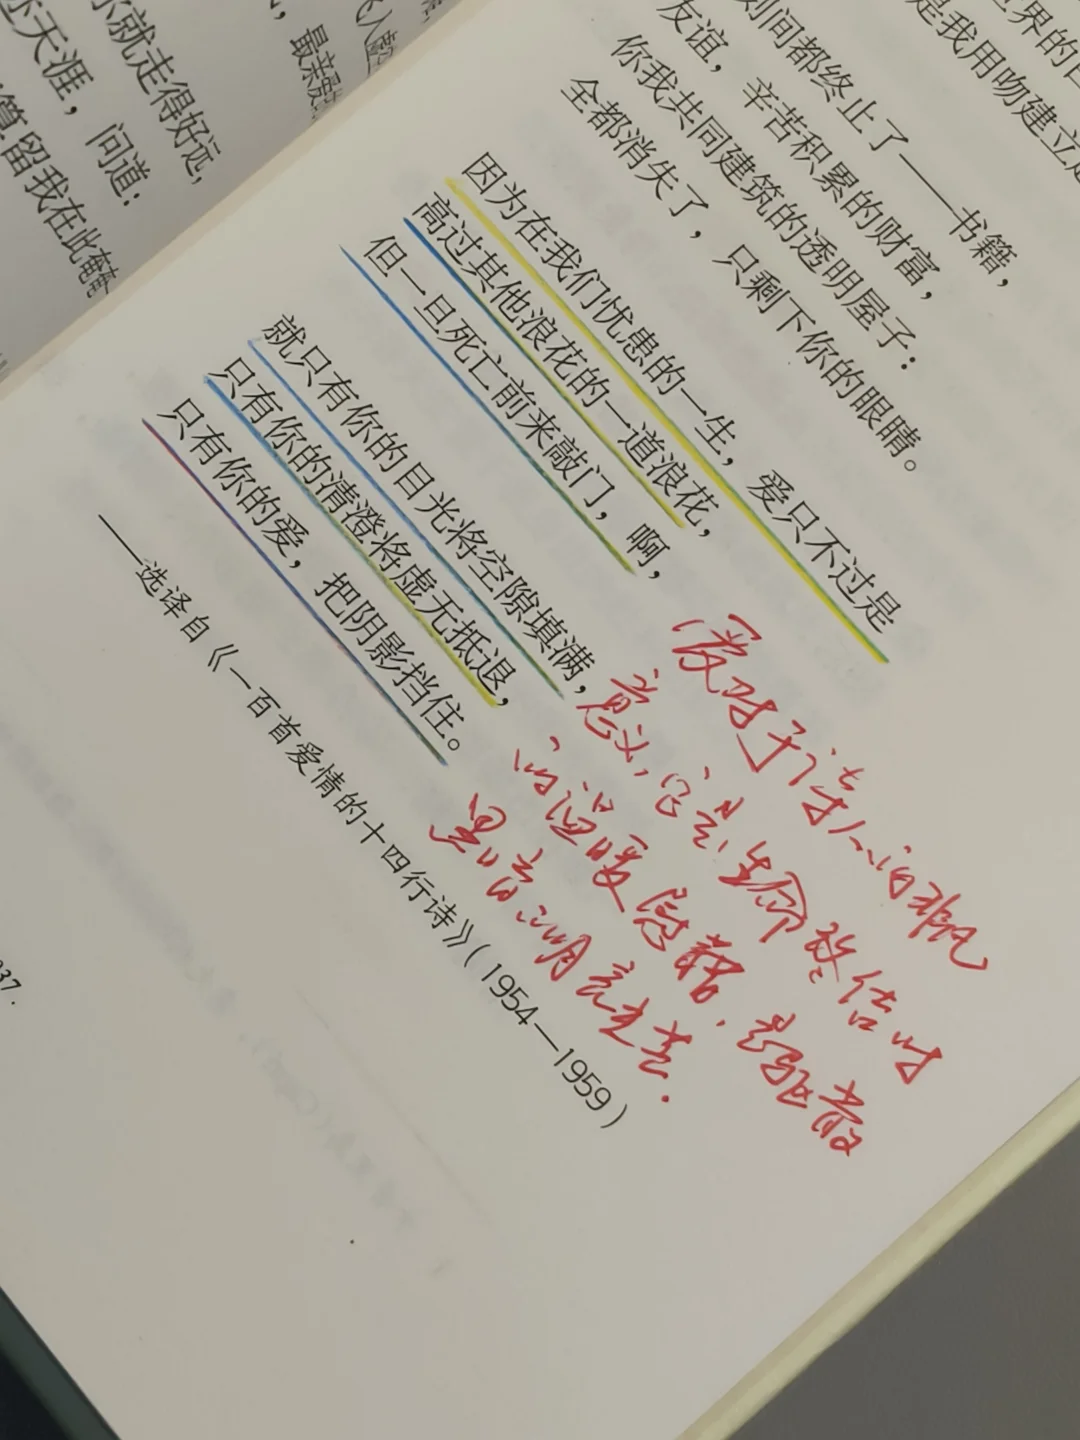 你就走得好远,
天涯,问道:
留我在此奄奄
最亲爱
世界的
是我用吻建立
刻间都终止了——书籍,
友谊,辛苦积累的财富,
你我共同建筑的透明屋子:
全都消失了,只剩下你的眼睛。
因为在我们忧患的一生,爱只不过是
高过其他浪花的一道浪花,
但一旦死亡前来敲门,啊,
就只有你的目光将空隙填满,
只有你的清澄将虚无抵退,
只有你的爱,把阴影挡住。
——选译自《一百首爱情的十四行诗》(1954—1959)
爱对于诗人的非凡
意义,它是生命终结时
的温暖慰藉,是驱散
黑暗的月亮之光.
37.